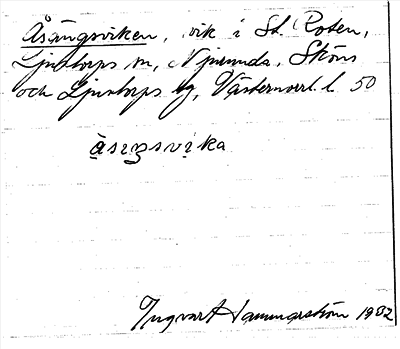 Åsängsviken, vik i St. Roten,
Ljustorps sn, Njurunda, Sköns
och Ljustorps tg, Västernorrl. l. 50
åsıŋsvika
Ingvar Hammarström 1932